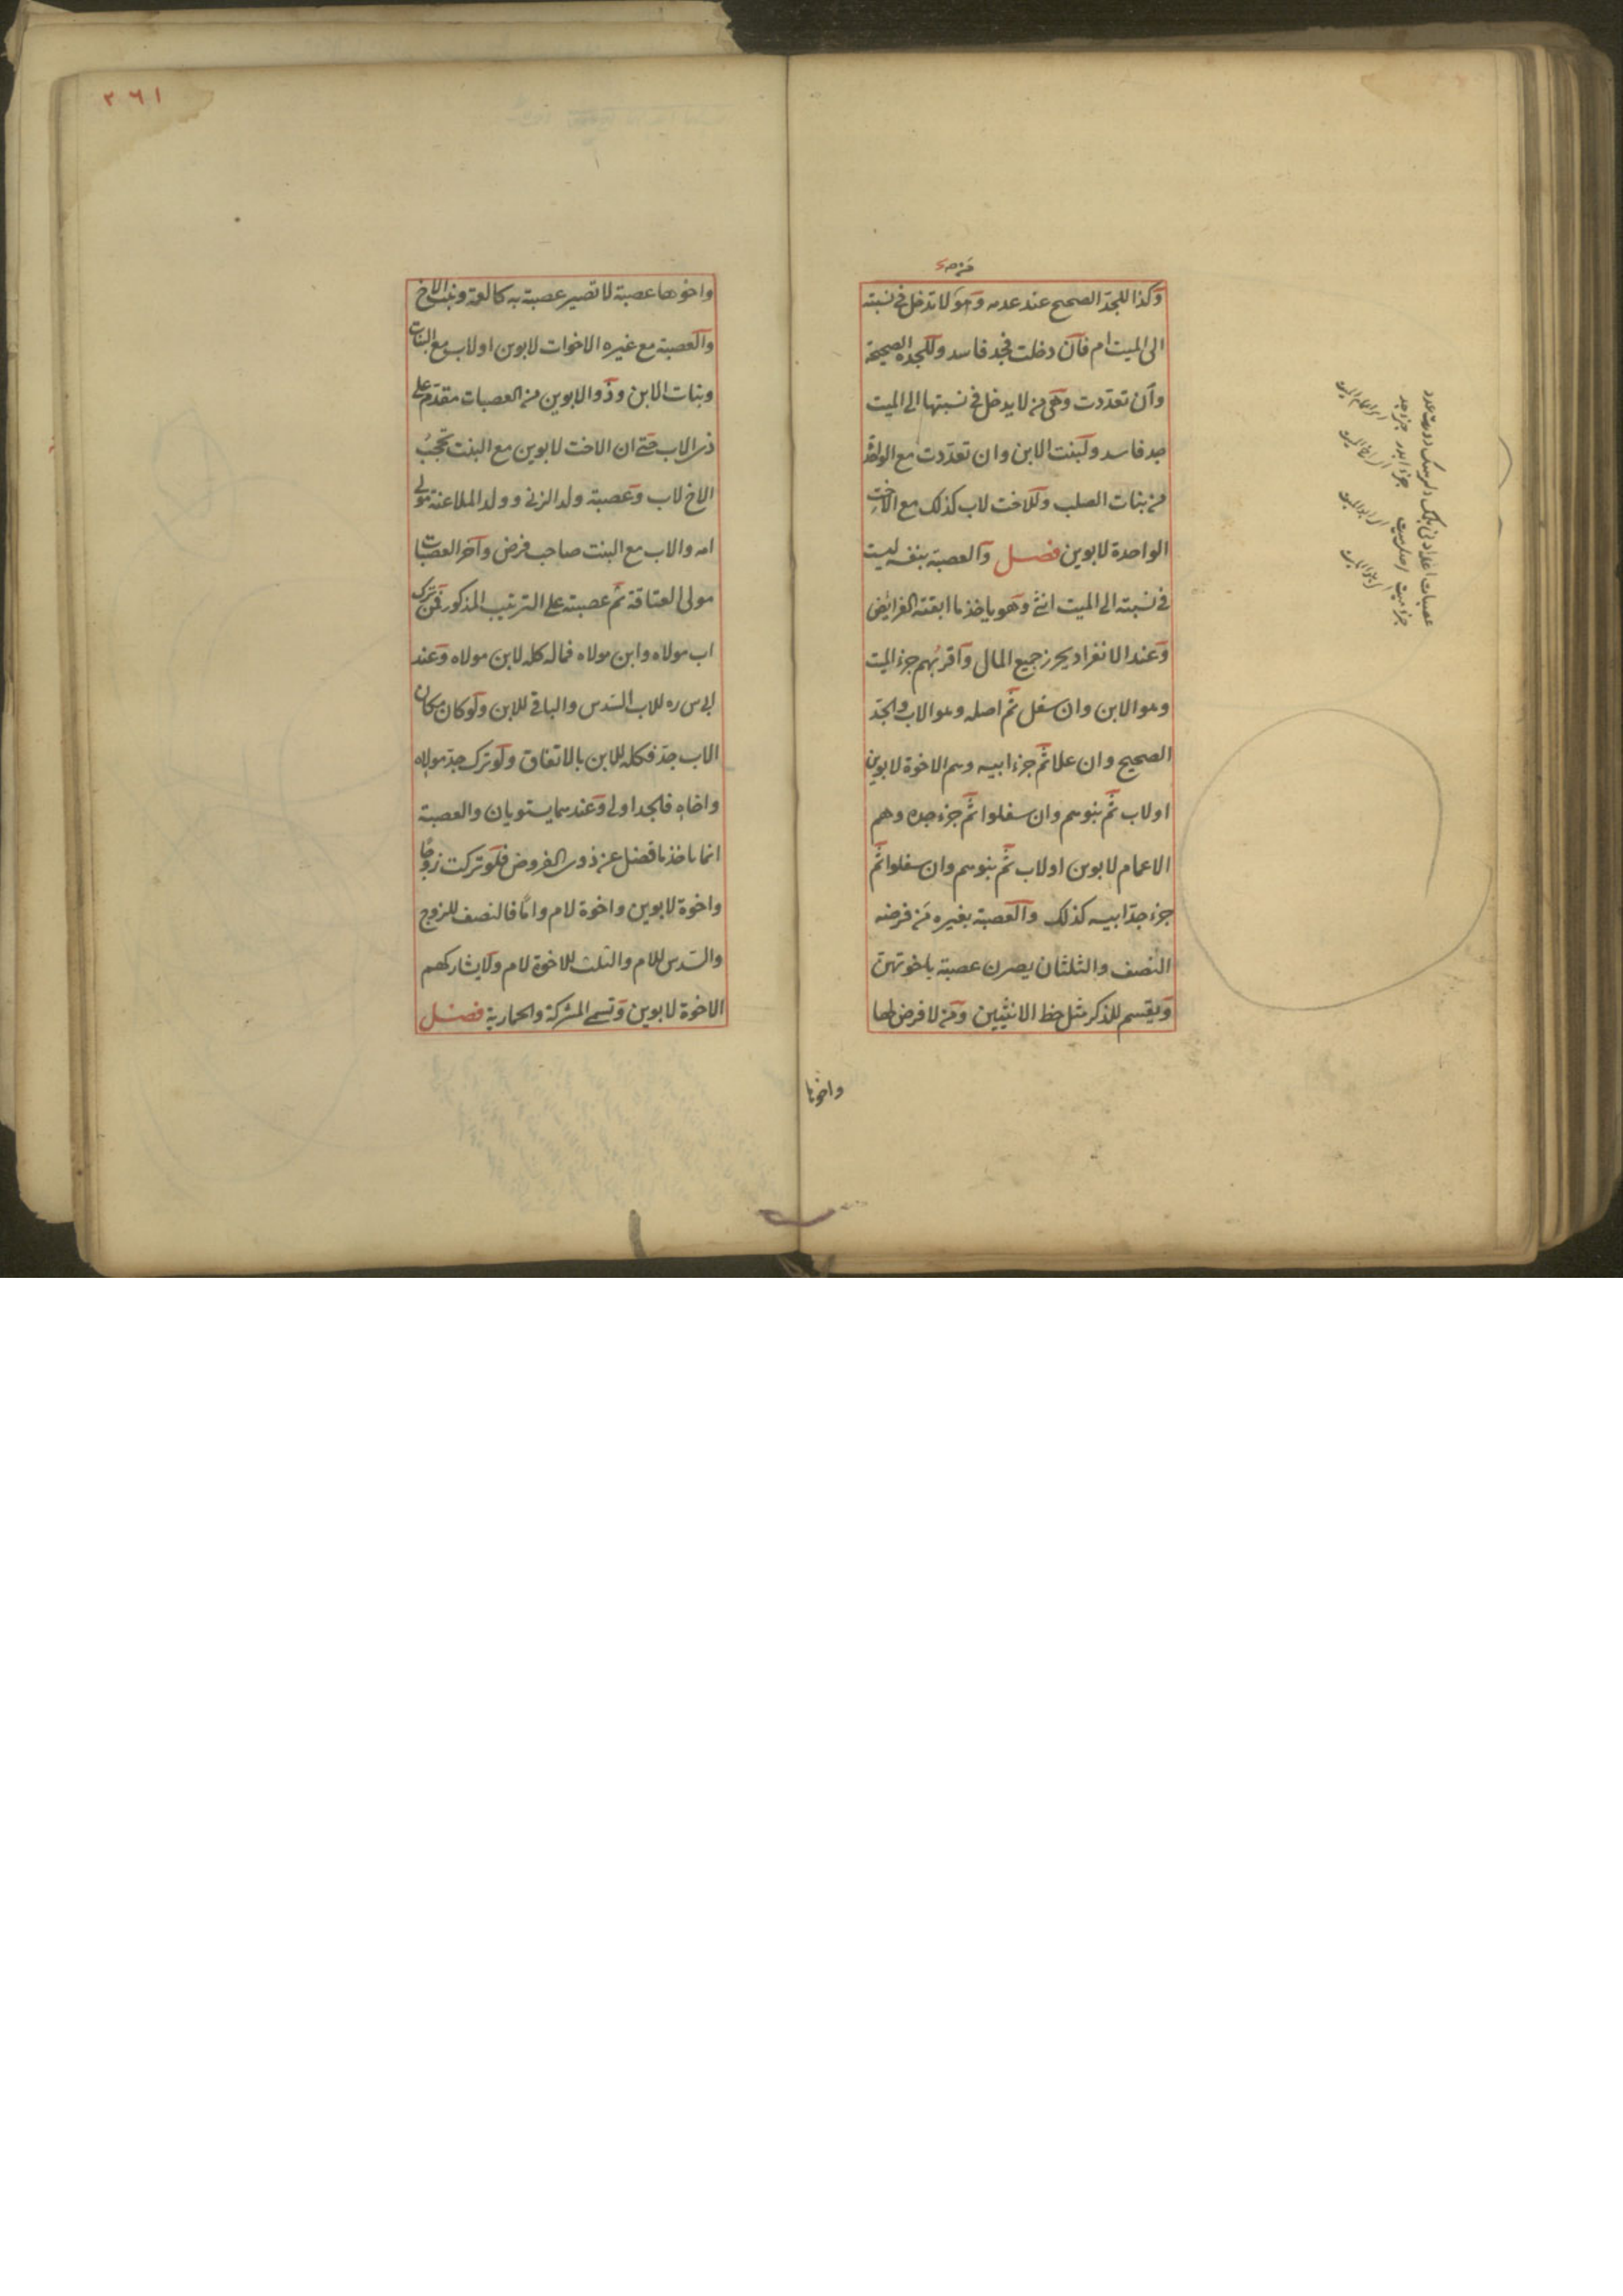 وكذا للجد الصحيح عند عدمه وهو لا تدخل في نسبته
الى الميت ام فان دخلت فجد فاسد وللجدة الصحيحة
وان تعددت وهي من لا يدخل في نسبتها الى الميت
جد فاسد ولبنت الابن وان تعددت مع الواحدة
من بنات الصلب وللاخت لاب كذلك مع الاخت
الواحدة لابوين فصل والعصبة بنفسه ليست
في نسبته الى الميت انثى وهو ياخذ ما ابقته الفرائض
وعند الانفراد يحرز جميع المال واقربهم جزء الميت
وهو الابن وان سفل ثم اصله وهو الاب والجد
الصحيح وان علا ثم جزء ابيه وهم الاخوة لابوين
او لاب ثم بنوهم وان سفلوا ثم جزء جده وهم
الاعمام لابوين او لاب ثم بنوهم وان سفلوا ثم
جزء جد ابيه كذلك والعصبة بغيره من فرضه
النصف والثلثان يصرن عصبة باخوتهن
ويقسم للذكر مثل حظ الانثيين ومن لا فرض لها
واخوها
٢٦١
واخوها عصبة لا تصير عصبة به كالعمة وبنت الاخ
والعصبة مع غيره الاخوات لابوين او لاب مع البنات
وبنات الابن وذو الابوين من العصبات مقدم على
ذي الاب حتى ان الاخت لابوين مع البنت تحجب
الاخ لاب وعصبة ولد الزنى وولد الملاعنة مولى
امه والاب مع البنت صاحب فرض وآخر العصبات
مولى العتاقة ثم عصبته على الترتيب المذكور فمن ترك
اب مولاه وابن مولاه فماله كله لابن مولاه وعند
ابي س ره للاب السدس والباقي للابن ولو كان مكان
الاب جد فكله للابن بالاتفاق ولو ترك جد مولاه
واخاه فالجد اولى وعندهما يستويان والعصبة
انما ياخذ ما فضل عن ذوى الفروض فلو تركت زوجا
واخوة لابوين واخوة لام واما فالنصف للزوج
والسدس للام والثلث للاخوة لام ولا يشاركهم
الاخوة لابوين وتسمى المشركة والحمارية فصل